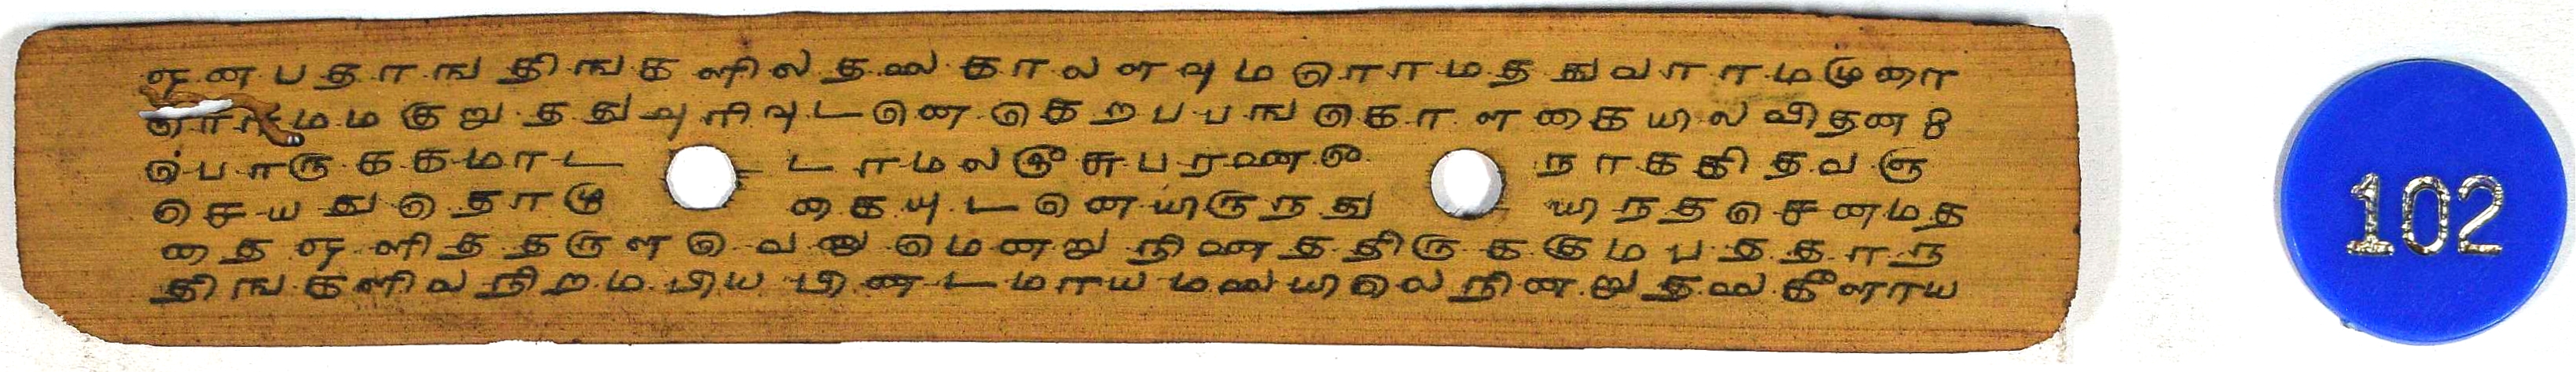 ஒனபதாஙதிஙகளிலதலைகாலளவுமரொாமததுவாரமமுளை
ரொாமமகுறுததுவுளிவுடனெகெறபபஙகொளகையிலவிதன
பொருககமாட டாமலஞீசுபரணனீ நாககிதவஞ
செயதுதொழு கையுடனெயிருநது யிநதசெனமத
தைஒளிததருளவெணுமெனறுநிணைததிருககுமபததாந
திஙகளிலநிறமபியபிணடமாயமலையிலெநினறுதலைகீளாய
102